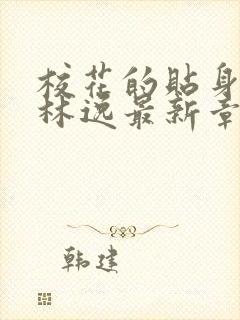 校花的贴身
林逸最新章
韩建